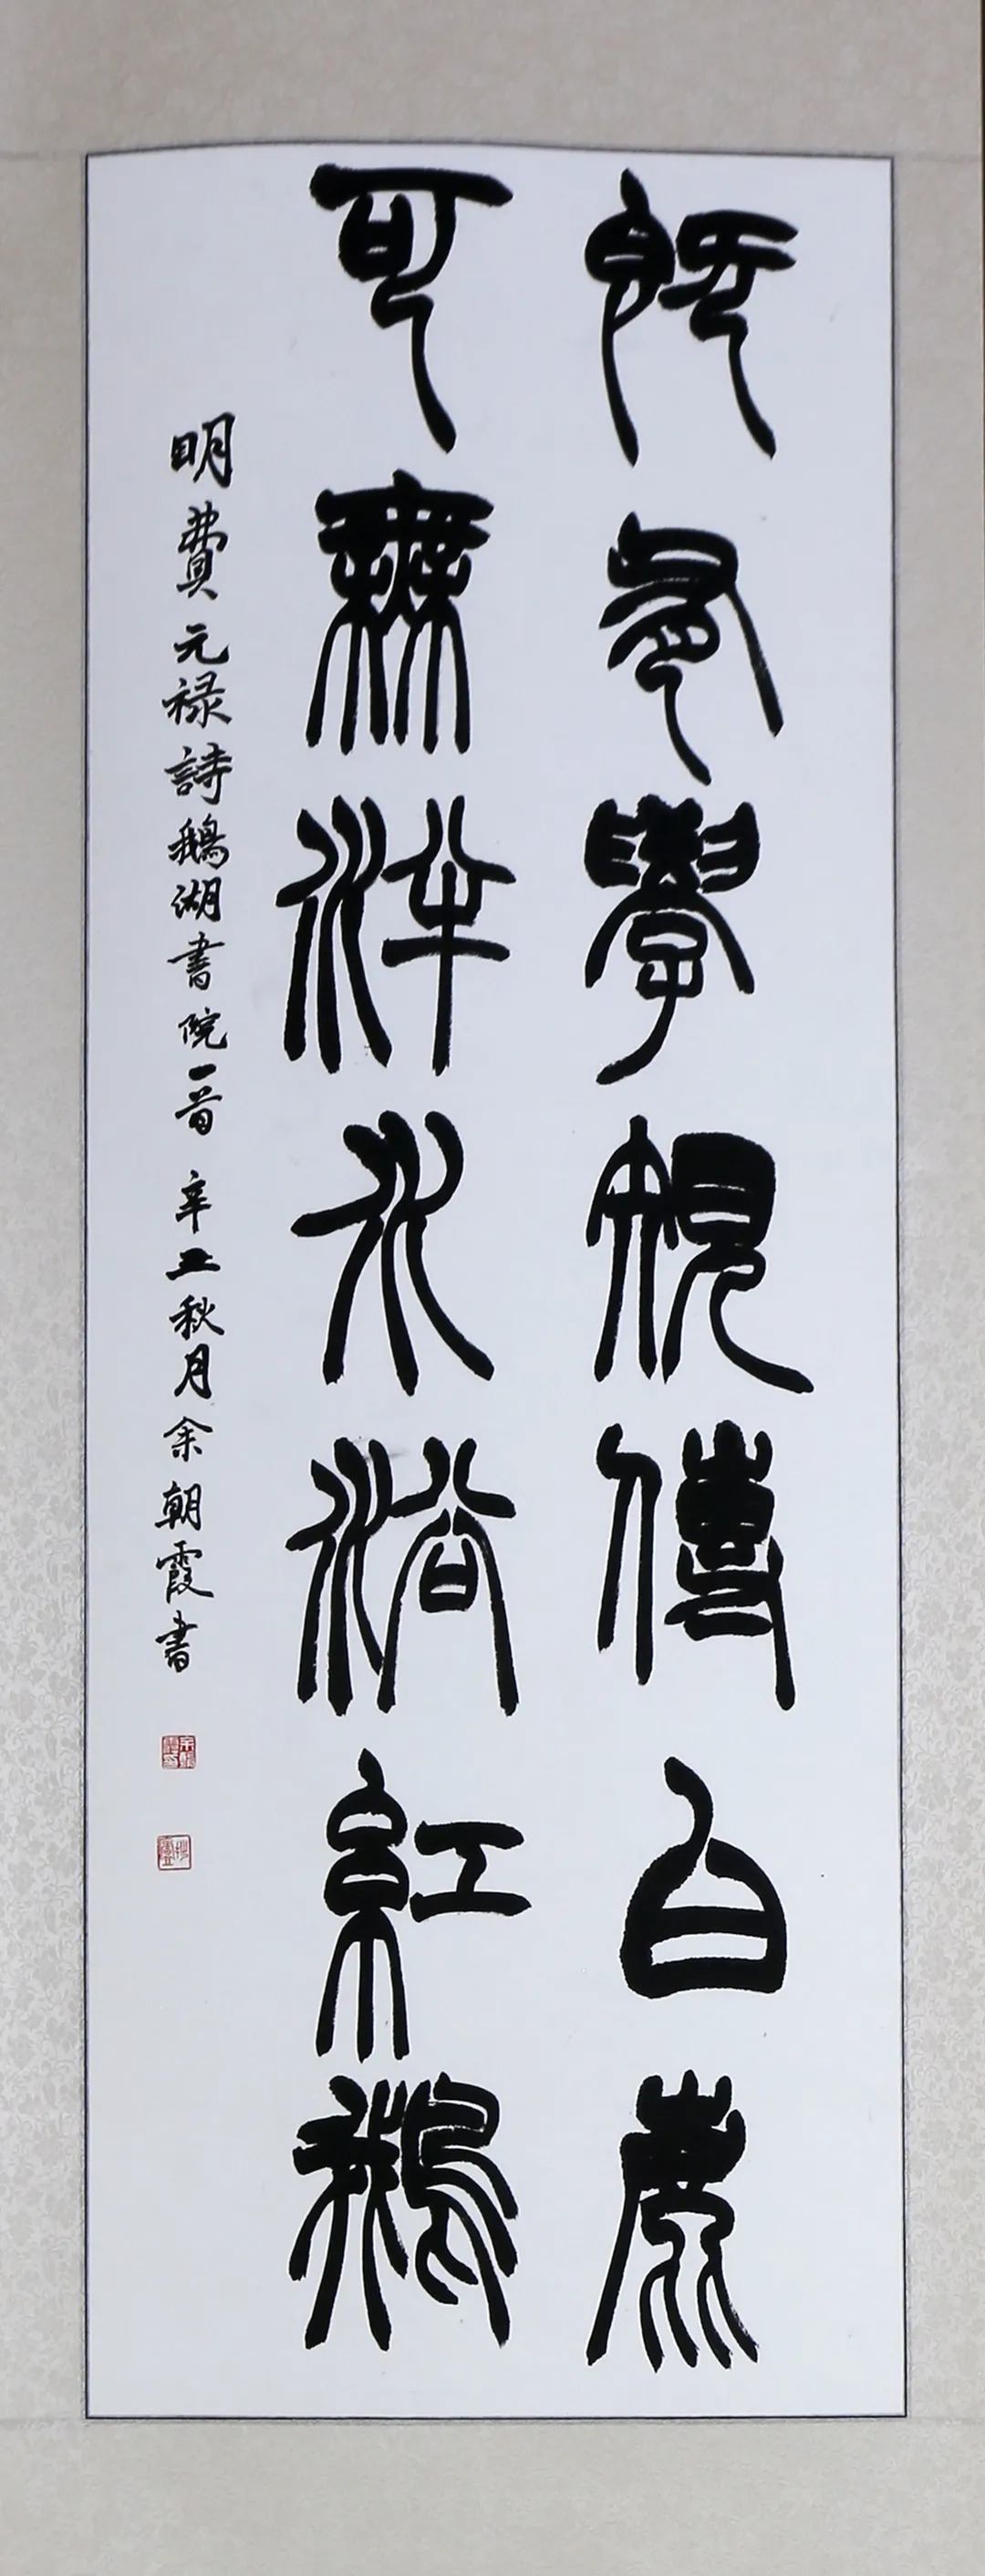 既有學規傳白鹿
可無泮水浴紅鵝
明費元禄詩鵝湖書院一首 辛丑秋月余朝霞書